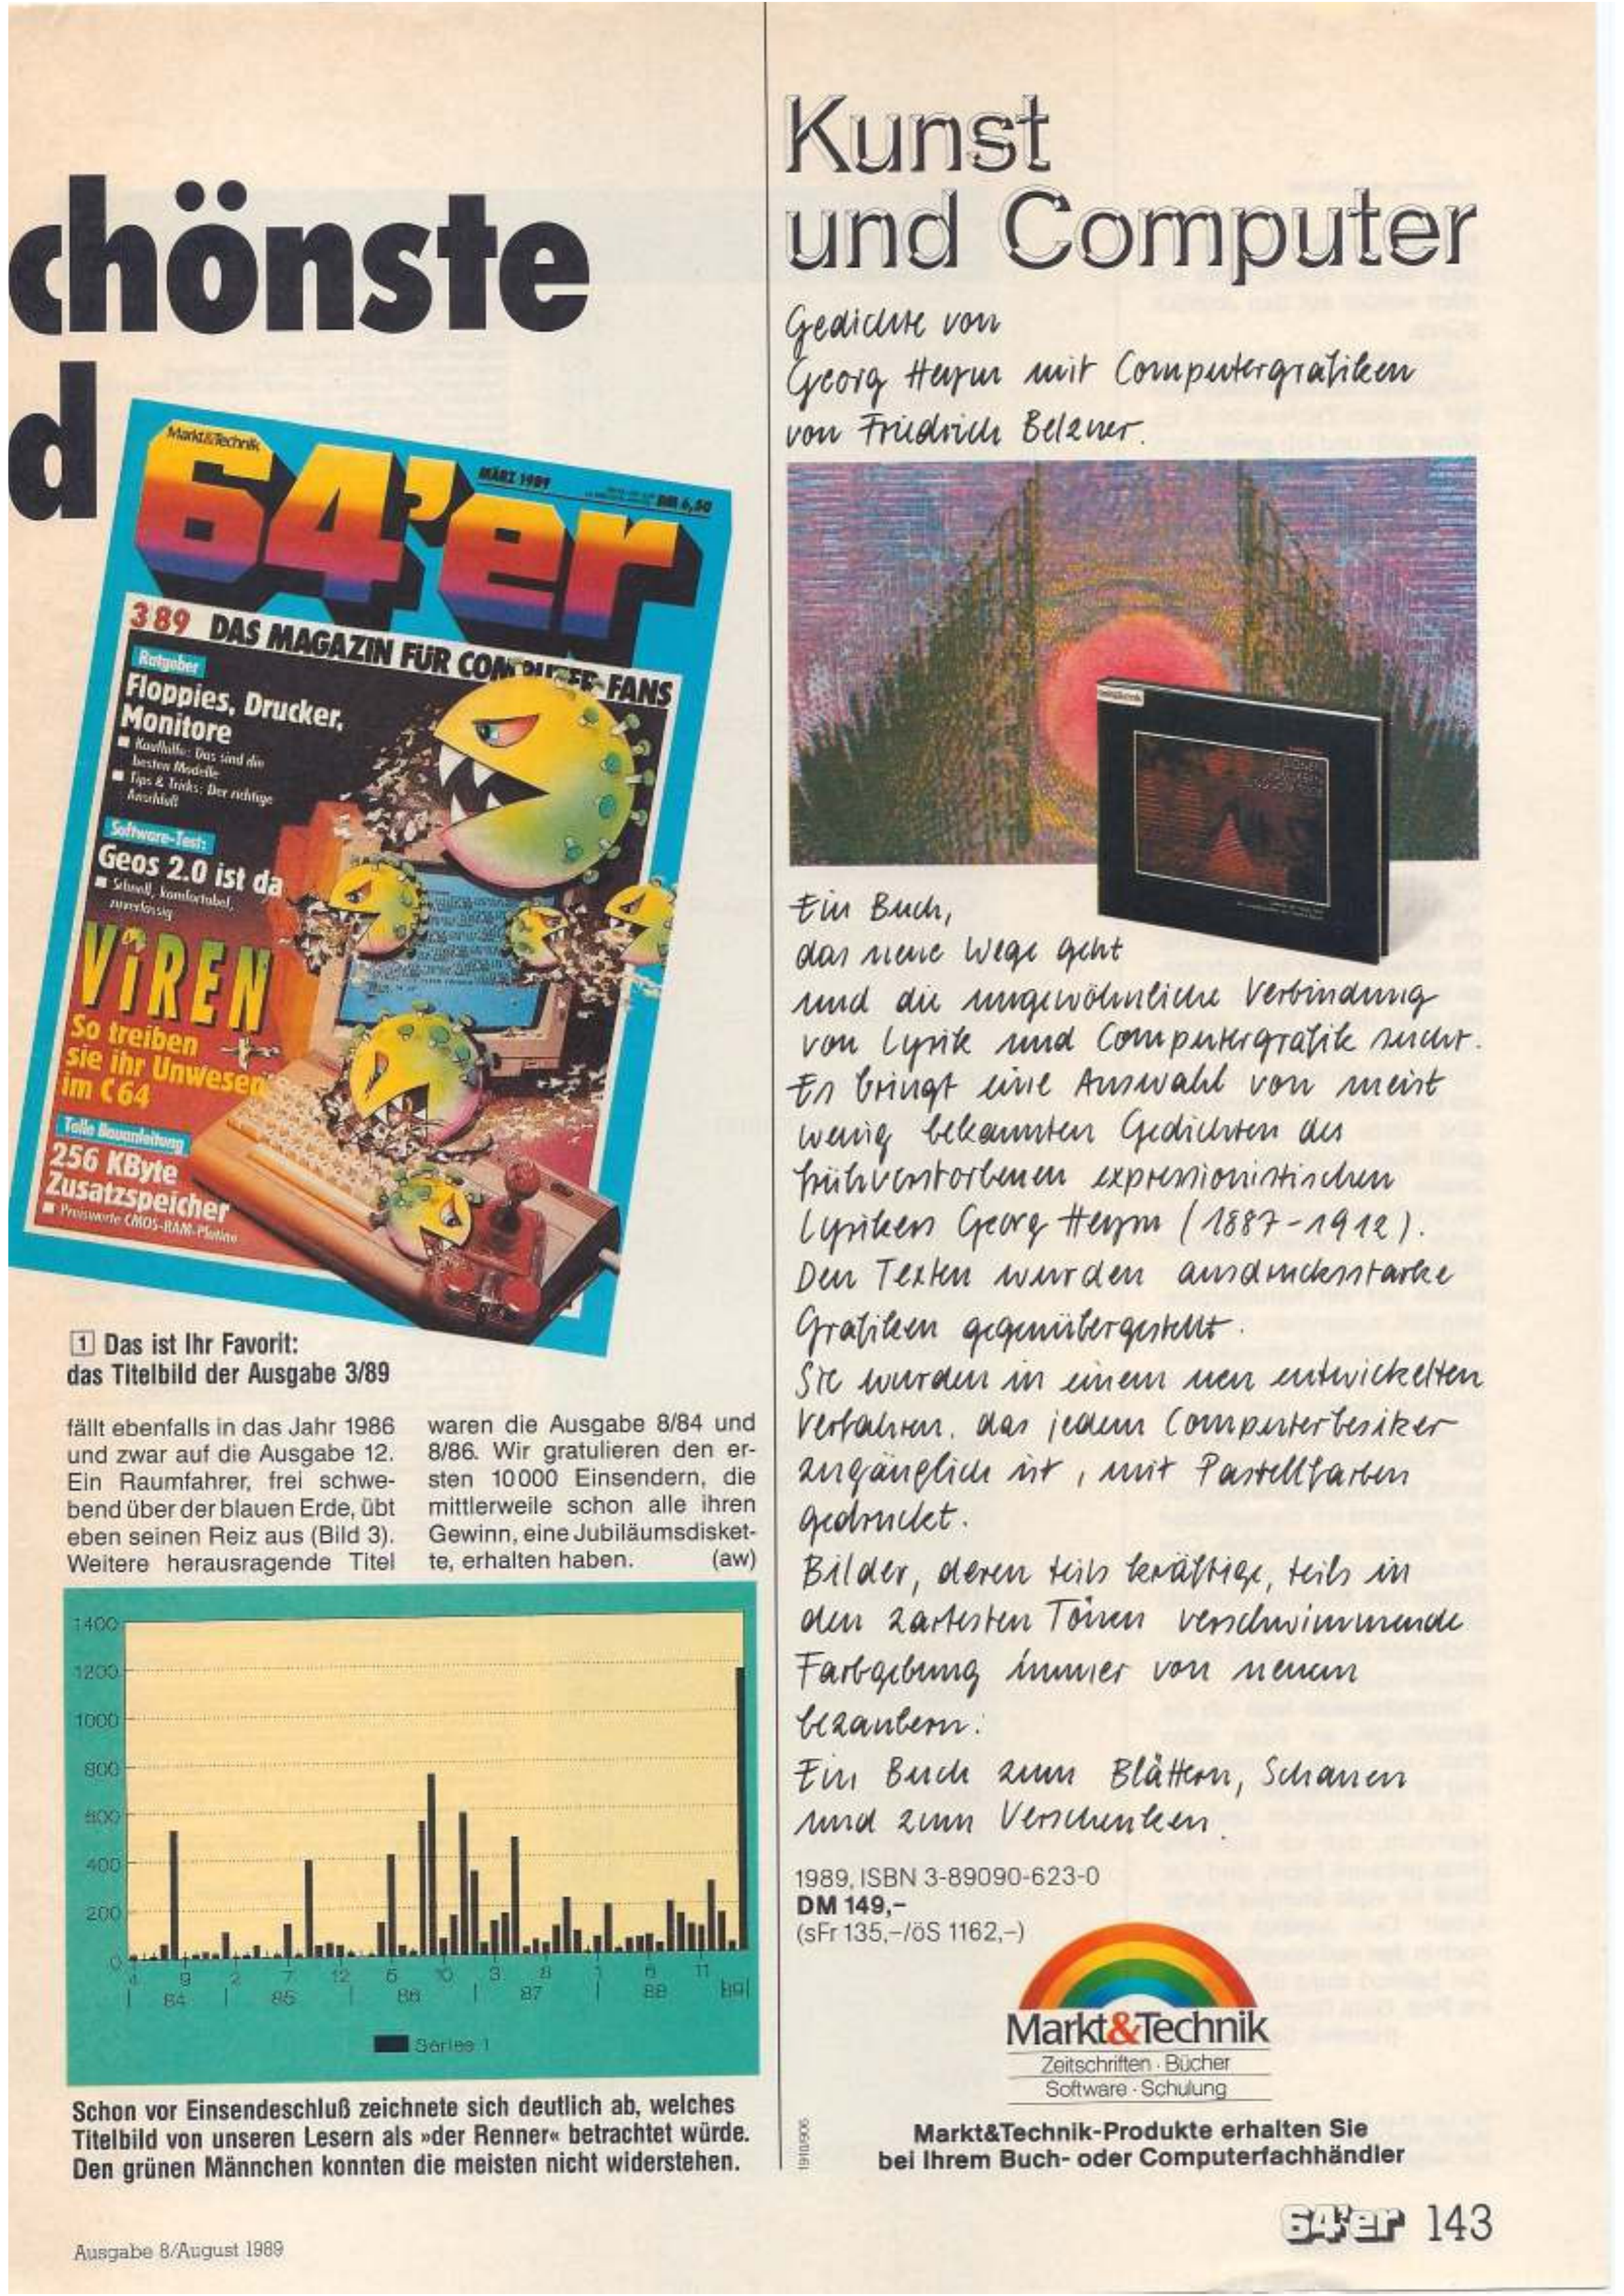 chönste
d
Markt&Technik
64'er
MÄRZ 1989
DM 6,50
3 89 DAS MAGAZIN FÜR COMPUTER-FANS
Ratgeber
Floppies, Drucker,
Monitore
Kaufhilfe: Das sind die
besten Modelle
Tips & Tricks: Der richtige
Anschluß
Software-Test:
Geos 2.0 ist da
Schnell, komfortabel,
zuverlässig
ViREN
So treiben
sie ihr Unwesen
im C 64
Tolle Bauanleitung
256 KByte
Zusatzspeicher
Preiswerte CMOS-RAM-Platine
1 Das ist Ihr Favorit:
das Titelbild der Ausgabe 3/89
fällt ebenfalls in das Jahr 1986
und zwar auf die Ausgabe 12.
Ein Raumfahrer, frei schwe-
bend über der blauen Erde, übt
eben seinen Reiz aus (Bild 3).
Weitere herausragende Titel
waren die Ausgabe 8/84 und
8/86. Wir gratulieren den er-
sten 10000 Einsendern, die
mittlerweile schon alle ihren
Gewinn, eine Jubiläumsdisket-
te, erhalten haben. (aw)
1400
1200
1000
800
600
400
200
0
4 9 2 7 12 5 10 3 8 1 6 11
84 85 86 87 88 89
Series 1
Schon vor Einsendeschluß zeichnete sich deutlich ab, welches
Titelbild von unseren Lesern als »der Renner« betrachtet würde.
Den grünen Männchen konnten die meisten nicht widerstehen.
Ausgabe 8/August 1989
Kunst
und Computer
Gedichte von
Georg Heym mit Computergrafiken
von Friedrich Belzner.
Ein Buch,
das neue Wege geht
und die ungewöhnliche Verbindung
von Lyrik und Computergrafik sucht.
Es bringt eine Auswahl von meist
wenig bekannten Gedichten des
frühverstorbenen expressionistischen
Lyrikers Georg Heym (1887-1912).
Den Texten wurden ausdrucksstarke
Grafiken gegenübergestellt.
Sie wurden in einem neu entwickelten
Verfahren, das jedem Computerbesitzer
zugänglich ist, mit Pastellfarben
gedruckt.
Bilder, deren teils kräftige, teils in
den zartesten Tönen verschwimmende
Farbgebung immer von neuem
bezaubern:
Ein Buch zum Blättern, Schauen
und zum Verschenken.
1989, ISBN 3-89090-623-0
DM 149,-
(sFr 135,-/öS 1162,-)
Markt&Technik
Zeitschriften · Bücher
Software · Schulung
1910/906
Markt&Technik-Produkte erhalten Sie
bei Ihrem Buch- oder Computerfachhändler
64'er 143